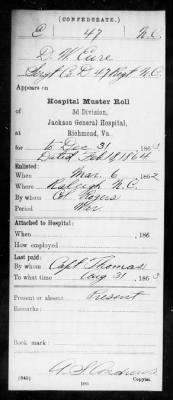 (CONFEDERATE.)
E 47 N.C.
D. W. Eure
Sergt Co. D 47 Regt N.C.
Appears on
Hospital Muster Roll
3d Division,
Jackson General Hospital,
at
Richmond, Va.
for to Dec 31, 1863
Dated Feb 18 1864
Enlisted:
When Mar. 6, 1862
Where Raleigh N.C.
By whom Col. Rogers
Period War
Attached to Hospital:
When , 186
How employed
Last paid:
By whom Capt Thomas
To what time Aug 31, 1863
Present or absent Present
Remarks:
Book mark:
(645)
Copyist.